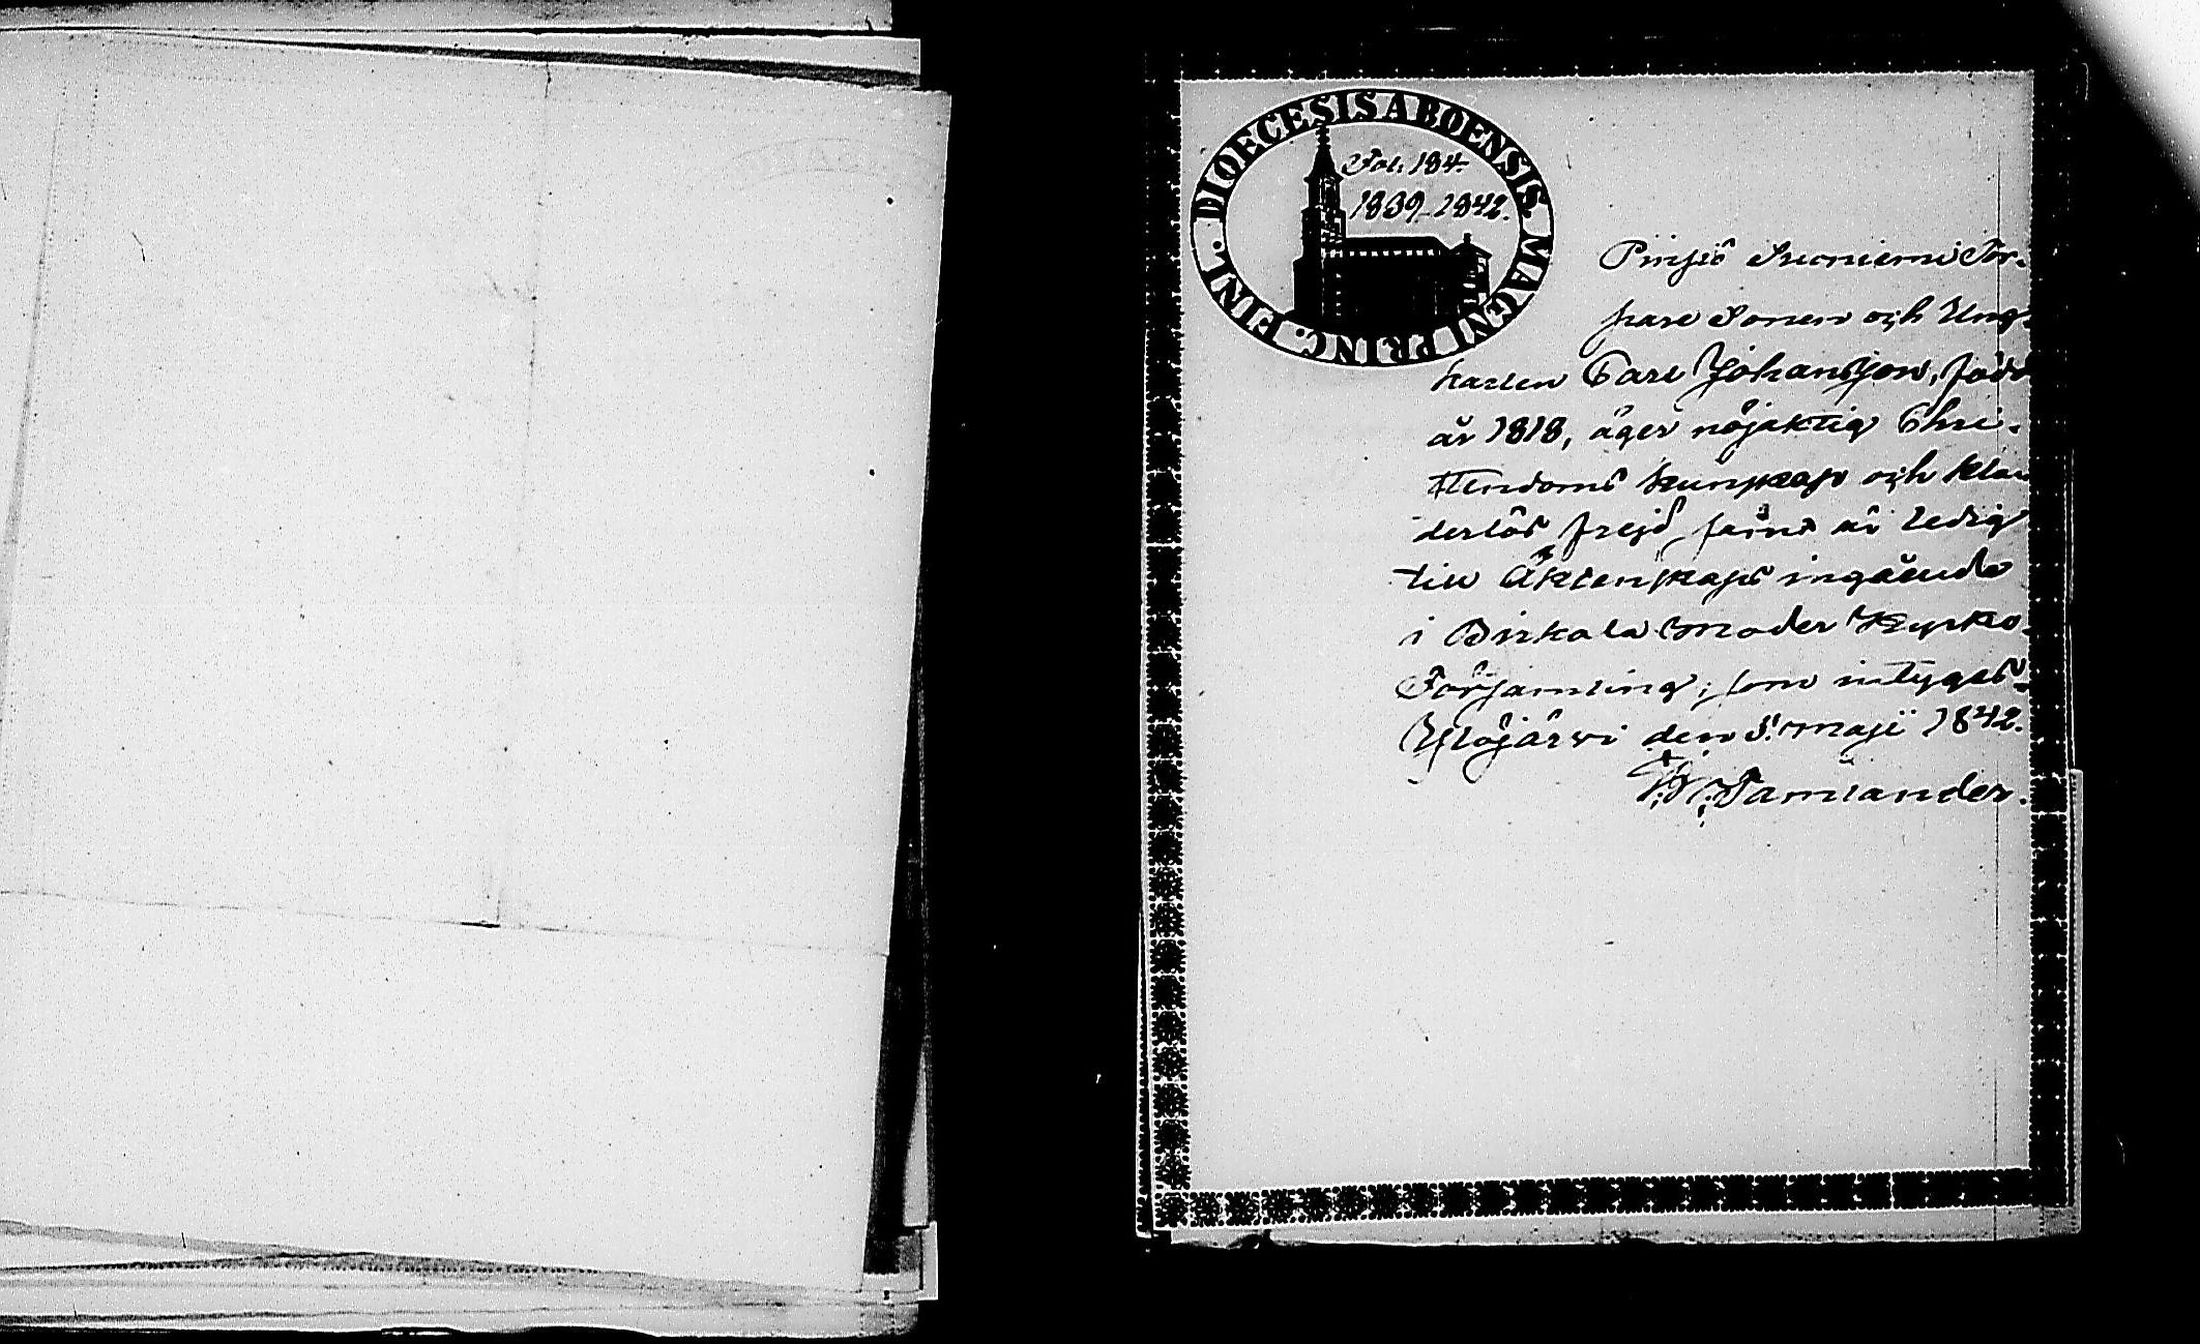 DIOECESIS ABOENSIS MAGNI PRINC. FINL.
Fol. 184.
1839–1842.
Pinsiö Tor-
pare Sonen och Ung-
karlen Carl Johansson, född
år 1818, äger nöjaktig Chri-
stendoms kunskap och klan
derlös frejd, samt är ledig
till Äktenskaps ingående
i Birkala Moder Kyrko-
Församling; som intygas.
Ylöjärvi den 5. Maji 1842.
Tamlander.